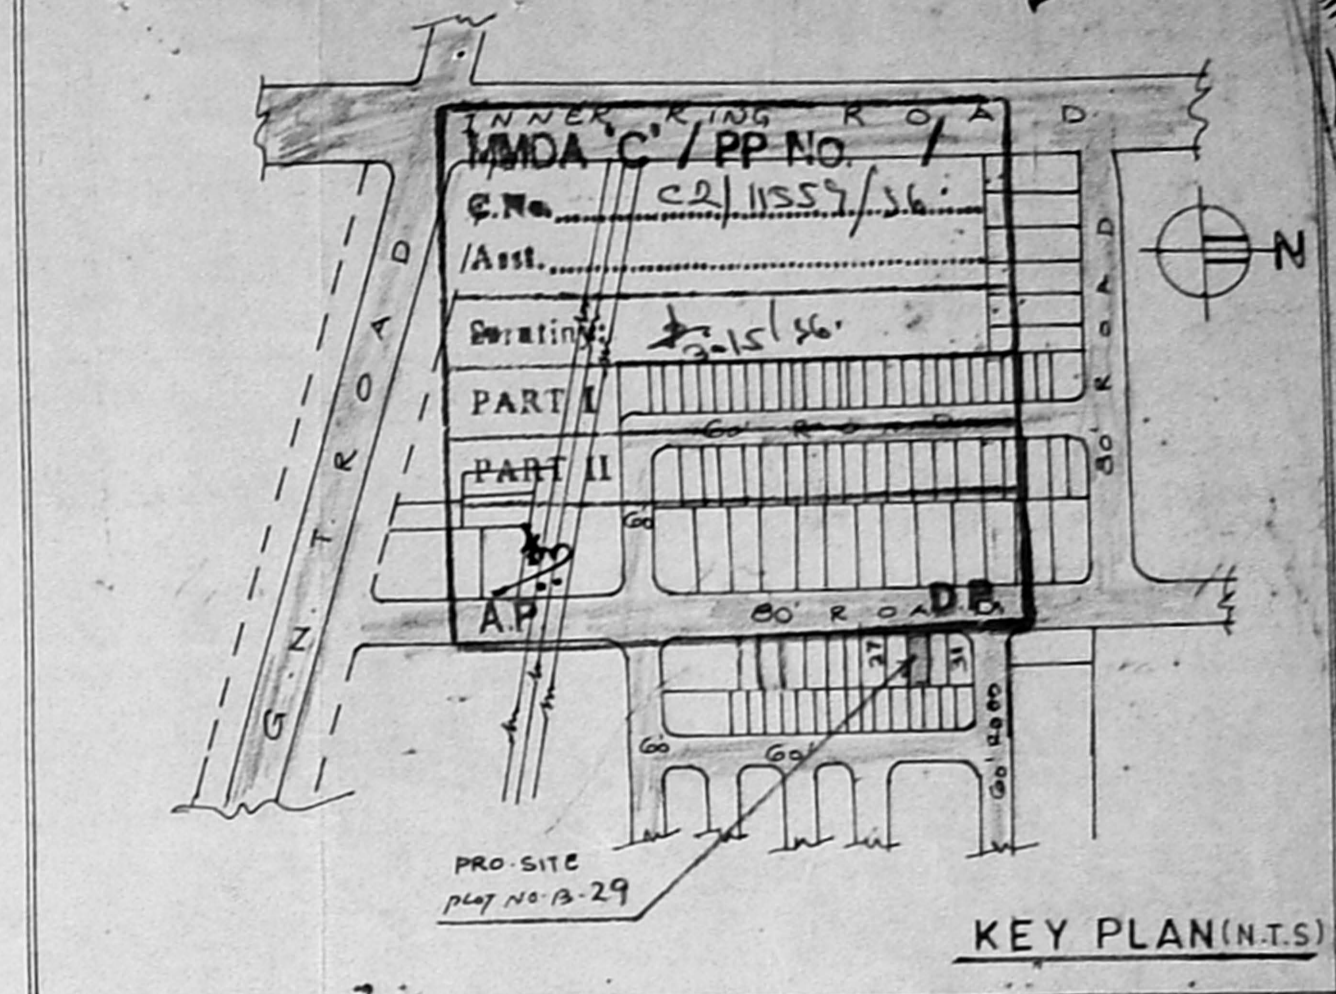 INNER RING ROAD
MMDA 'C' / PP No. /
C.No. C2/11559/86
/Asst.
Scrutiny:
PART I
PART II
A.P
D.P
G.N.T. ROAD
60' ROAD
80' ROAD
N
60
80' ROAD
27
31
60'
60'
60' ROAD
PRO.SITE
PLOT NO.B-29
KEY PLAN (N.T.S)